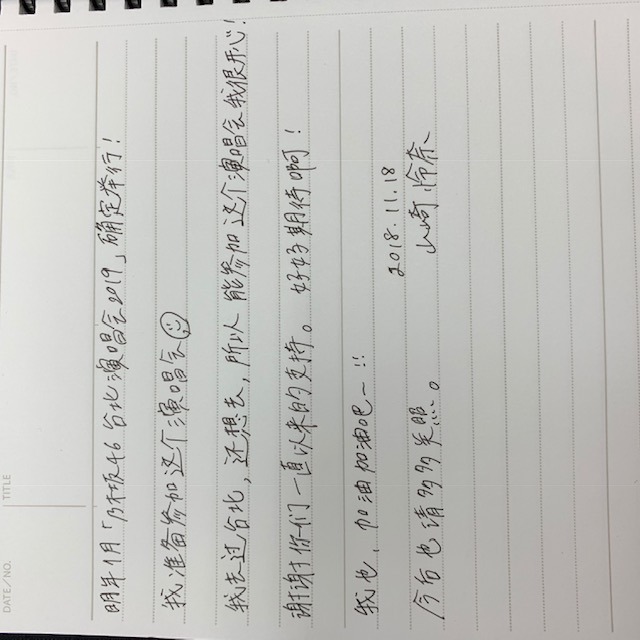 TITLE
DATE/NO.
明年1月「乃木坂46 台北演唱会2019」确定举行！
我准备参加这个演唱会
我去过台北，还想去，所以 能参加 这个演唱会 我很开心！
谢谢你们一直以来的支持。 好好期待啊！
我也，加油加油吧〜!!
今后也请多多关照。
2018.11.18
山崎 怜奈